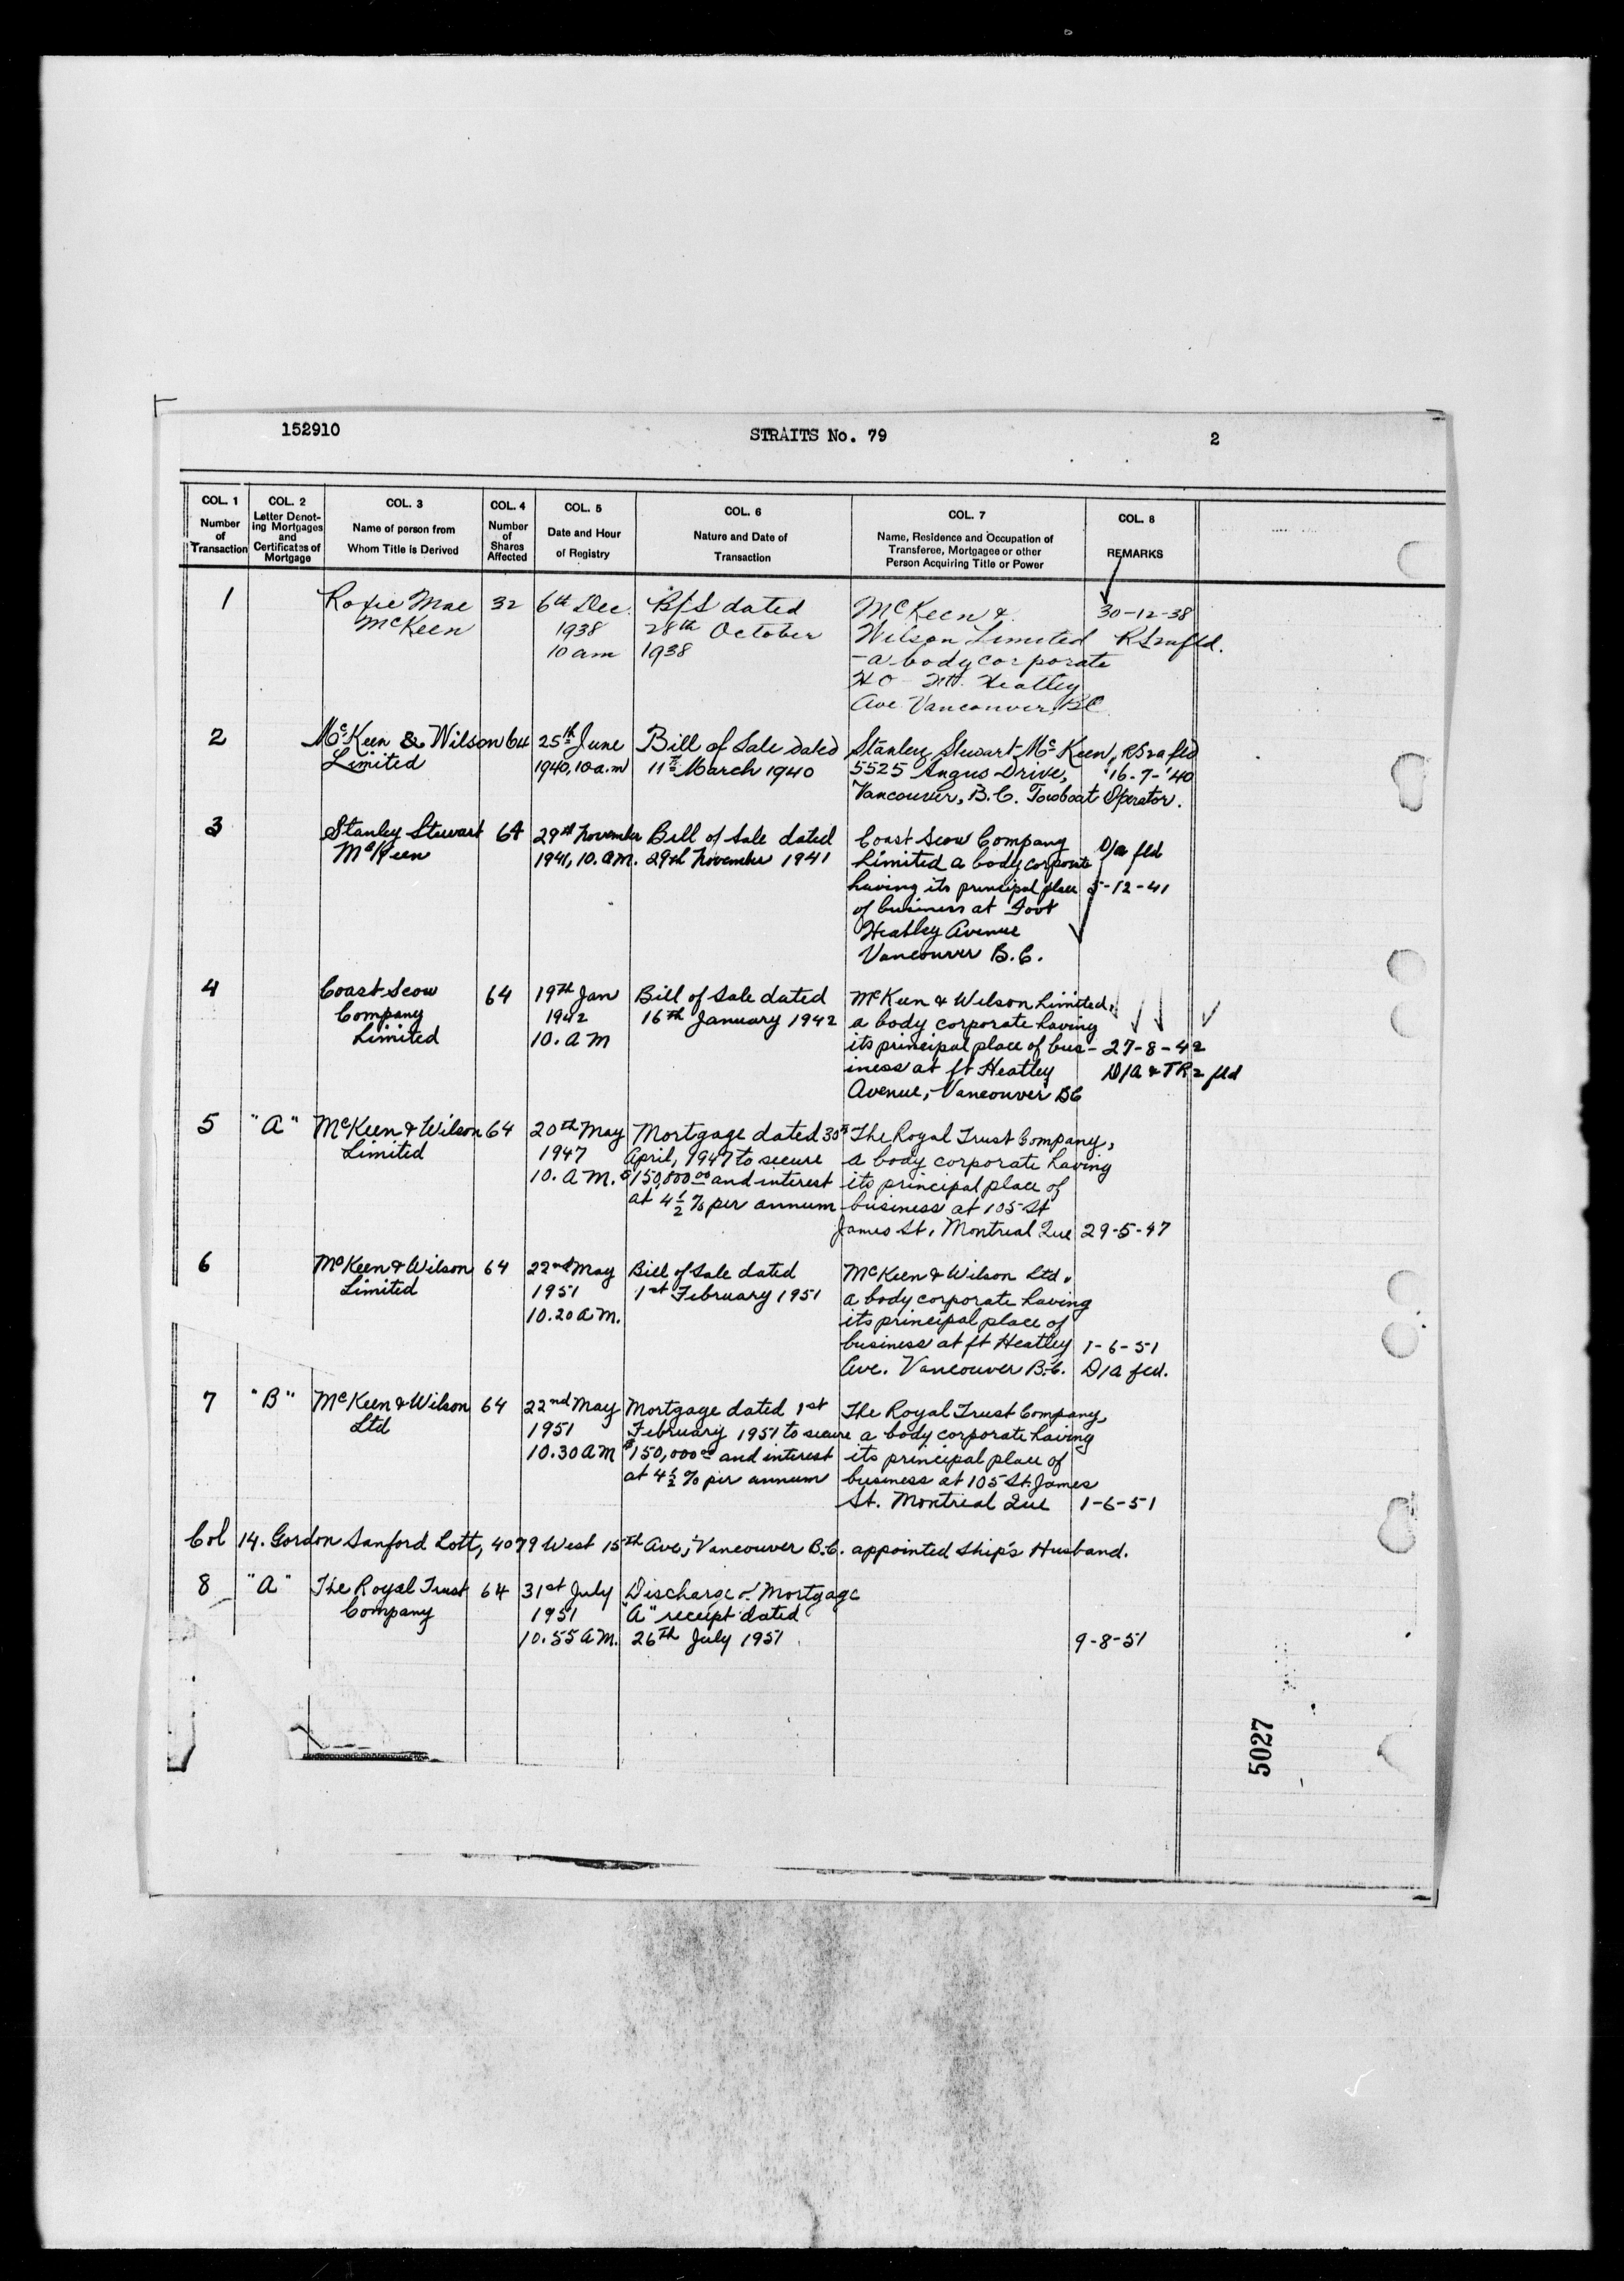 152910 STRAITS No. 79 2
COL. 1 Number of Transaction
COL. 2 Letter Denoting Mortgages and Certificates of Mortgage
COL. 3 Name of person from Whom Title is Derived
COL. 4 Number of Shares Affected
COL. 5 Date and Hour of Registry
COL. 6 Nature and Date of Transaction
COL. 7 Name, Residence and Occupation of Transferee, Mortgagee or other Person Acquiring Title or Power
COL. 8 REMARKS
1 Roxie Mae 32 6th Dec. B/S dated McKeen & 30-12-38
McKeen 1938 28th October Wilson Limited
10 am 1938 - a body corporate
HO Heatley
Ave Vancouver, BC
2 McKeen & Wilson 64 25th June Bill of Sale dated Stanley Stewart McKeen, fld
Limited 1940, 10 a.m 11th March 1940 5525 Angus Drive, 16-7-'40
Vancouver, B.C. Towboat Operator.
3 Stanley Stewart 64 29th November Bill of Sale dated Coast Scow Company D/a fld
McKeen 1941, 10. a.m. 29th November 1941 Limited a body corporate
having its principal place 5-12-41
of business at Foot
Heatley Avenue
Vancouver B.C.
4 Coast Scow 64 19th Jan Bill of Sale dated McKeen & Wilson Limited,
Company 1942 16th January 1942 a body corporate having
Limited 10. AM its principal place of bus- 27-8-42
iness at ft Heatley D/A & TR2 fld
Avenue, Vancouver BC
5 "A" McKeen & Wilson 64 20th May Mortgage dated 30th The Royal Trust Company,
Limited 1947 April, 1947 to secure a body corporate having
10. A.M. $150,000.00 and interest its principal place of
at 4 1/2 % per annum business at 105 St
James St. Montreal Que 29-5-47
6 McKeen & Wilson 64 22nd May Bill of Sale dated McKeen & Wilson Ltd.
Limited 1951 1st February 1951 a body corporate having
10.20 AM. its principal place of
business at ft Heatley 1-6-51
Ave. Vancouver B.C. D/A fld.
7 "B" McKeen & Wilson 64 22nd May Mortgage dated 1st The Royal Trust Company,
Ltd 1951 February 1951 to secure a body corporate having
10.30 AM $150,000.00 and interest its principal place of
at 4 1/2 % per annum business at 105 St. James
St. Montreal Que 1-6-51
Col 14. Gordon Sanford Lott, 4079 West 15th Ave, Vancouver B.C. appointed Ship's Husband.
8 "A" The Royal Trust 64 31st July Discharge of Mortgage
Company 1951 "A" receipt dated
10.55 AM. 26th July 1951 9-8-51
5027